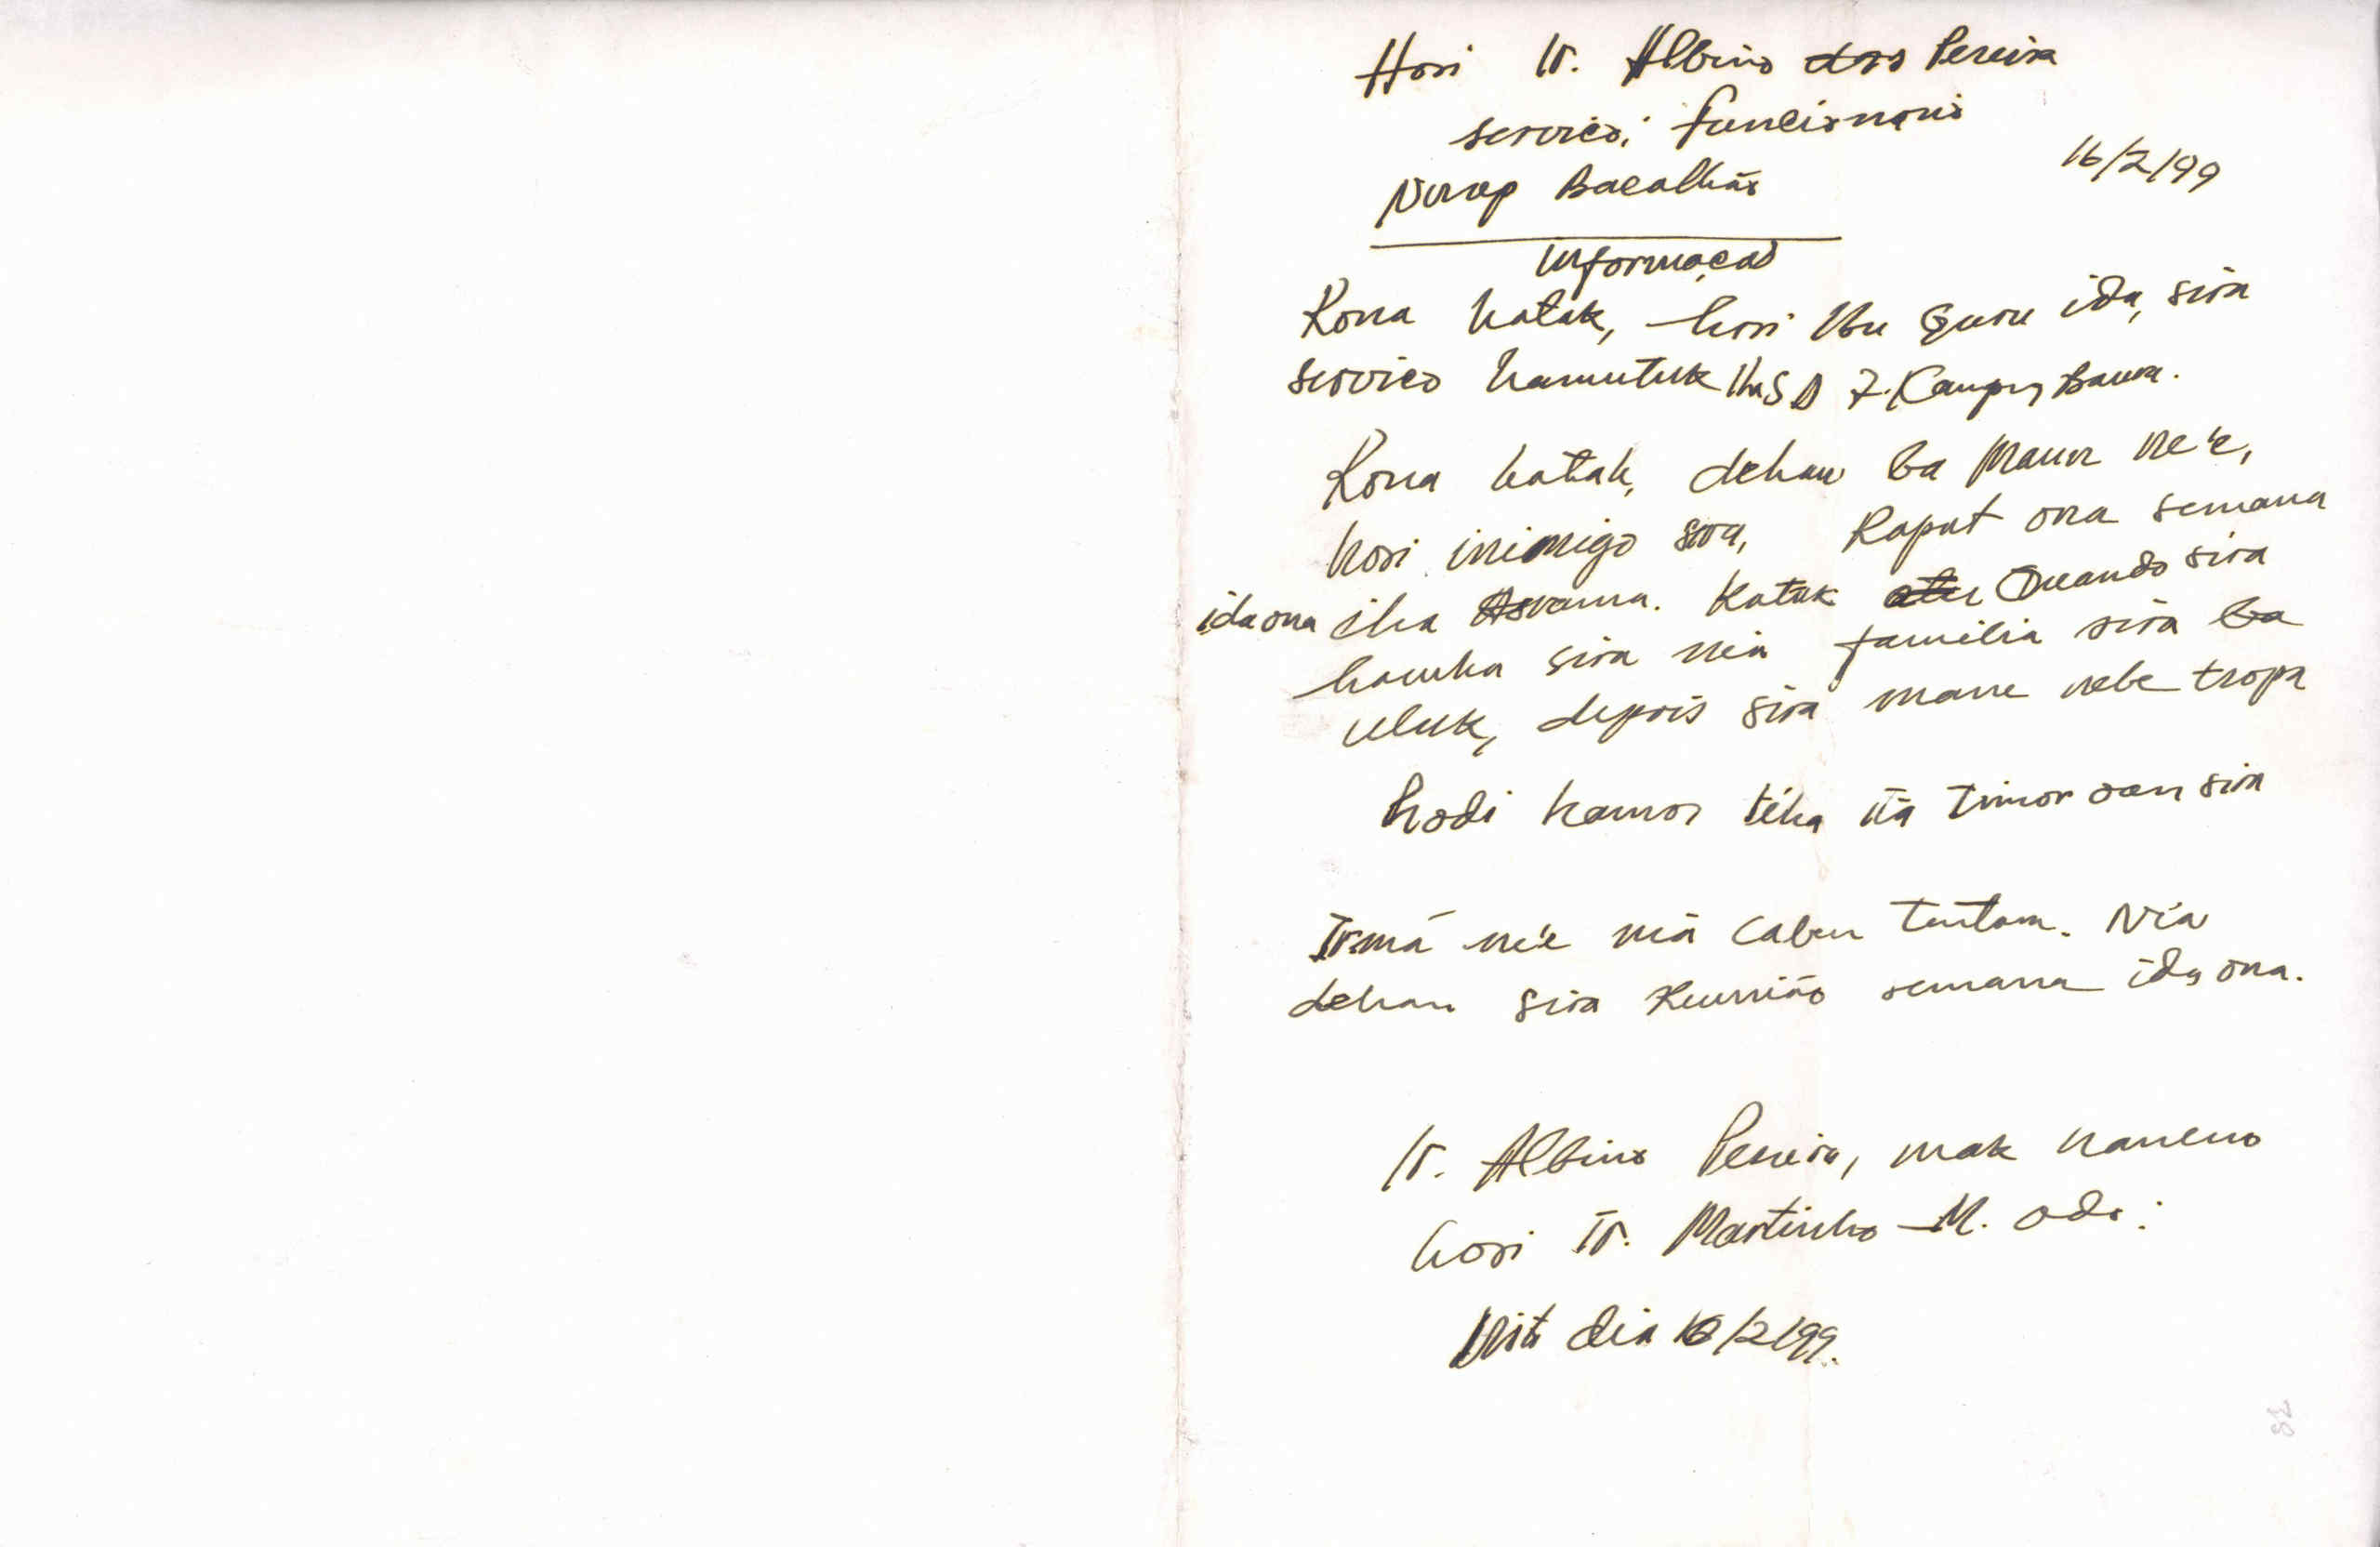 Hosi Ir. Albino dos Pereira
servico: funcionario
16/2/99
Bacalhão
Informacao
Rona katak, hosi Ibu Guru ida, sira
servico hamutuk iha SD 7. Kampung Baru.
Rona katak, dehan ba Maun ne'e,
hosi inimigo sira, Rapat ona semana
ida ona iha Asrama. Katak Quando sira
hauka sira nia familia sira ba
uluk, depois sira mane nebe tropa
hodi hamos tiha ita timor oan sira
Irmã ne'e nia laben tentara. Nia
dehan sira Reunião semana ida ona.
Ir. Albino Pereira, mak haneno
hosi Ir. Martinho M. Odo:
dia 16/2/99.
82